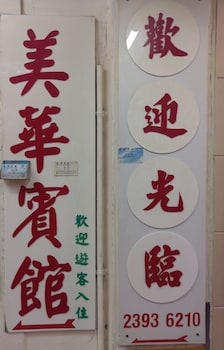 美華賓館
歡迎遊客入住
歡迎光臨
2393 6210